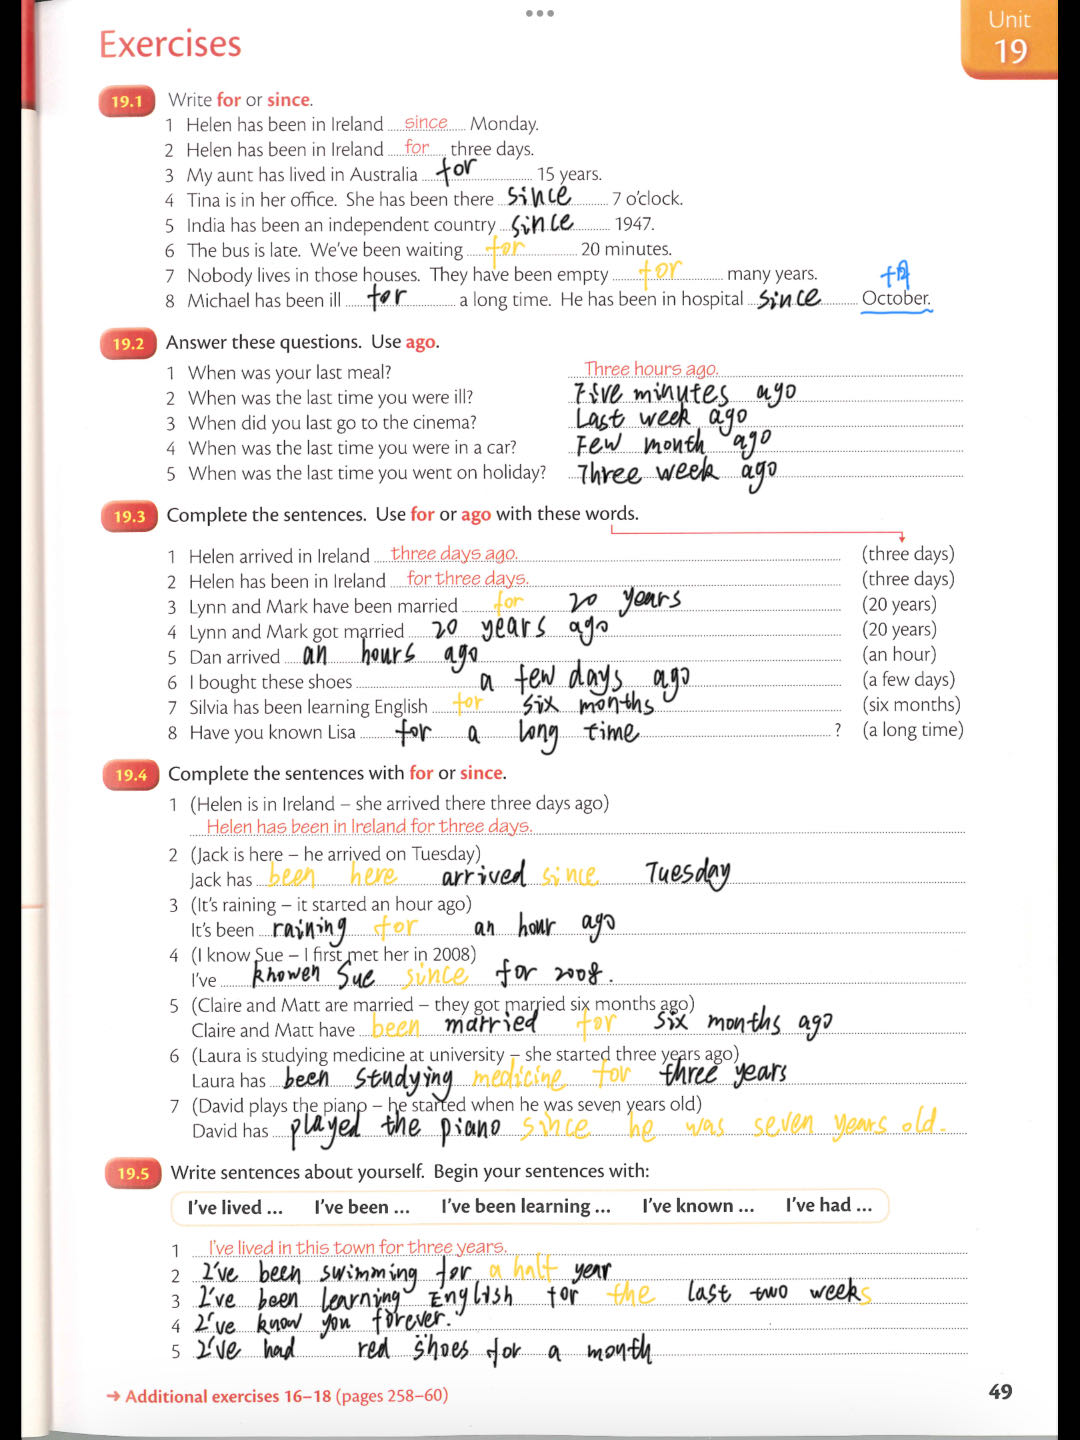 Unit
19
Exercises
19.1 Write for or since.
1 Helen has been in Ireland since Monday.
2 Helen has been in Ireland for three days.
3 My aunt has lived in Australia for 15 years.
4 Tina is in her office. She has been there since 7 o'clock.
5 India has been an independent country since 1947.
6 The bus is late. We've been waiting for 20 minutes.
7 Nobody lives in those houses. They have been empty for many years.
十月
8 Michael has been ill for a long time. He has been in hospital since October.
19.2 Answer these questions. Use ago.
1 When was your last meal? Three hours ago.
2 When was the last time you were ill? Five minutes ago
3 When did you last go to the cinema? Last week ago
4 When was the last time you were in a car? Few month ago
5 When was the last time you went on holiday? Three week ago
19.3 Complete the sentences. Use for or ago with these words.
1 Helen arrived in Ireland three days ago. (three days)
2 Helen has been in Ireland for three days. (three days)
3 Lynn and Mark have been married for 20 years (20 years)
4 Lynn and Mark got married 20 years ago (20 years)
5 Dan arrived an hours ago (an hour)
6 I bought these shoes a few days ago (a few days)
7 Silvia has been learning English for six months (six months)
8 Have you known Lisa for a long time ? (a long time)
19.4 Complete the sentences with for or since.
1 (Helen is in Ireland – she arrived there three days ago)
Helen has been in Ireland for three days.
2 (Jack is here – he arrived on Tuesday)
Jack has been here arrived since Tuesday
3 (It's raining – it started an hour ago)
It's been raining for an hour ago
4 (I know Sue – I first met her in 2008)
I've knowen Sue since for 2008.
5 (Claire and Matt are married – they got married six months ago)
Claire and Matt have been married for six months ago
6 (Laura is studying medicine at university – she started three years ago)
Laura has been studying medicine for three years
7 (David plays the piano – he started when he was seven years old)
David has played the piano since he was seven years old.
19.5 Write sentences about yourself. Begin your sentences with:
I've lived ... I've been ... I've been learning ... I've known ... I've had ...
1 I've lived in this town for three years.
2 I've been swimming for a half year
3 I've been learning English for the last two weeks
4 I've know you forever.
5 I've had red shoes for a month
→ Additional exercises 16–18 (pages 258–60)
49